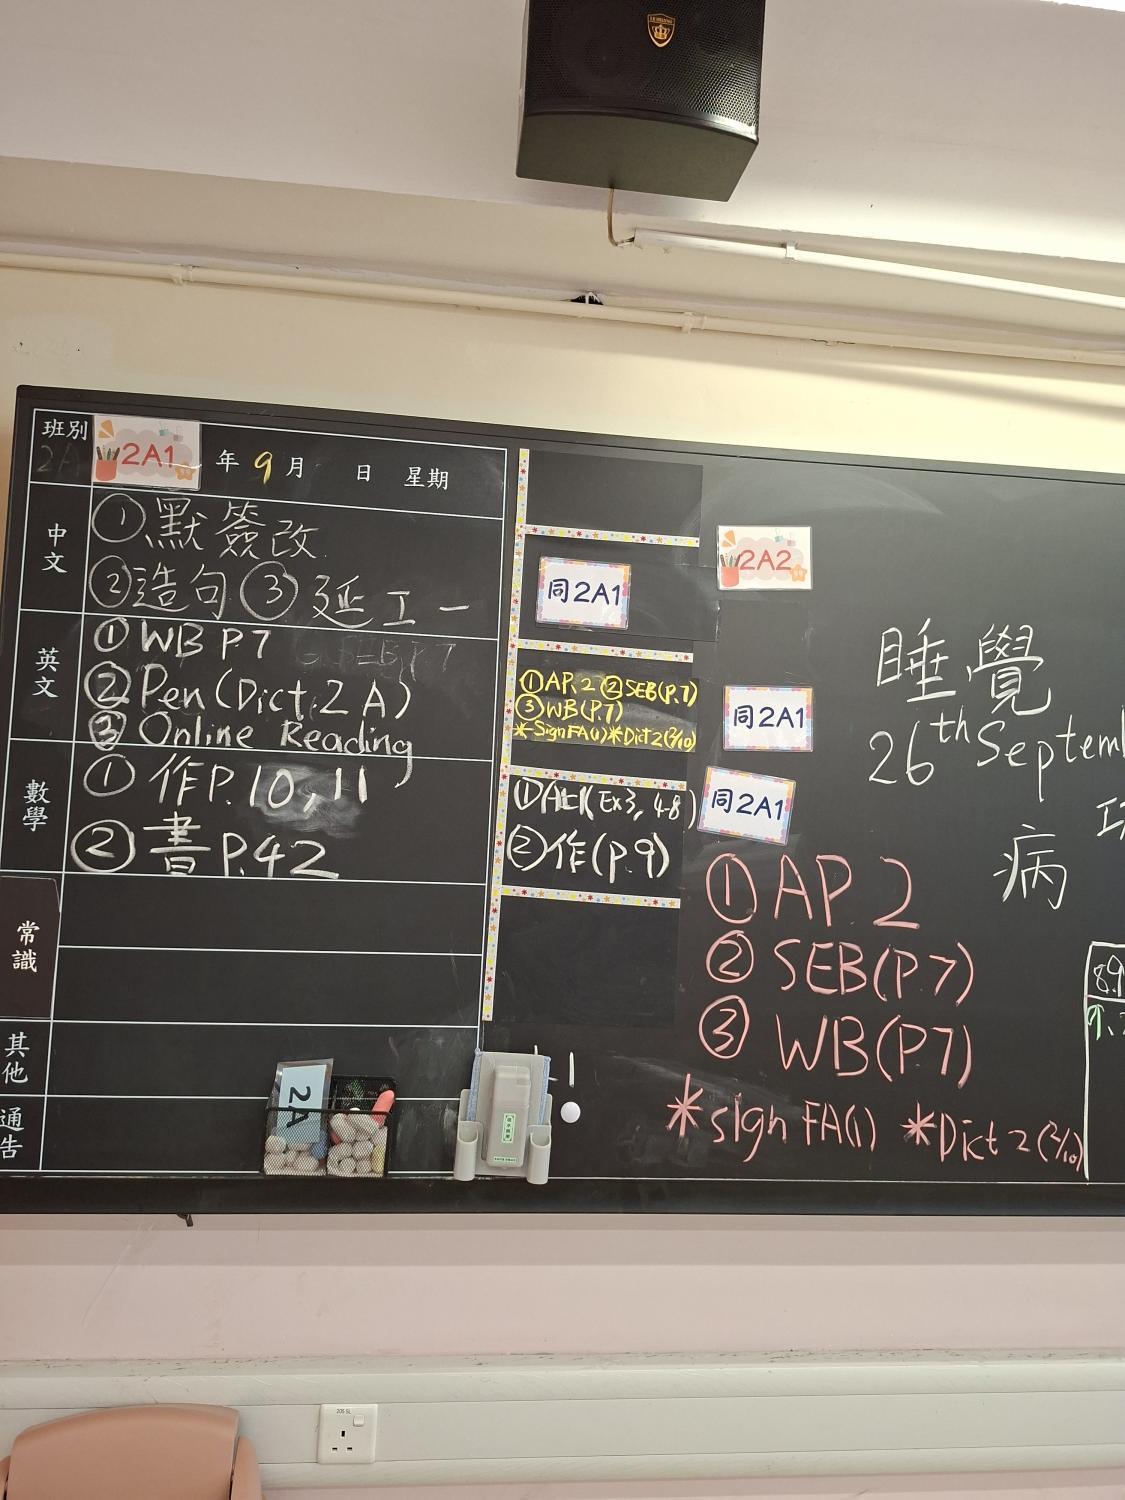 班別 2A1 年 9 月 日 星期
中文
①默簽改
②造句 ③延工一
英文
① WB P.7
② Pen (Dict. 2 A)
③ Online Reading
數學
① 作P.10, 11
② 書P.42
常識
其他
通告
2A
同2A1
①AP.2 ②SEB(P.7)
③WB(P.7)
*Sign FA(1) *Dict 2(2/10)
(Ex3, 4-8)
②作(P.9)
2A2
同2A1
同2A1
① AP. 2
② SEB(P.7)
③ WB(P7)
*sign FA(1) *Dict 2(2/10)
睡覺
26th Septem
病